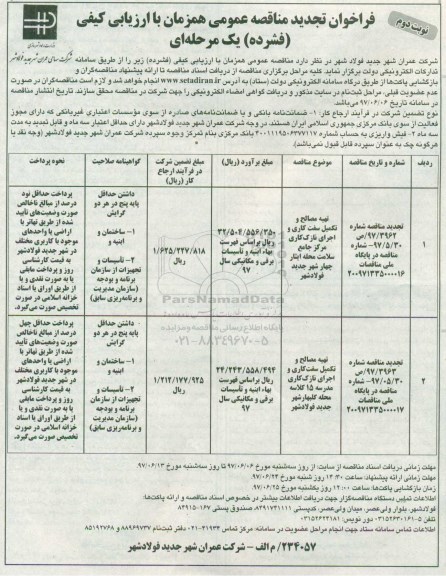 نوبت دوم
فراخوان تجدید مناقصه عمومی همزمان با ارزیابی کیفی
(فشرده) یک مرحله‌ای
شرکت عمران شهر جدید فولاد شهر در نظر دارد مناقصه عمومی همزمان با ارزیابی کیفی (فشرده) زیر را از طریق سامانه
تدارکات الکترونیکی دولت برگزار نماید. کلیه مراحل برگزاری مناقصه از دریافت اسناد مناقصه تا ارائه پیشنهاد مناقصه‌گران و
بازگشایی پاکت‌ها از طریق درگاه سامانه تدارکات الکترونیکی دولت (ستاد) به آدرس www.setadiran.ir انجام خواهد شد و لازم است مناقصه‌گران در صورت
عدم عضویت قبلی، مراحل ثبت‌نام در سایت مذکور و دریافت گواهی امضاء الکترونیکی را جهت شرکت در مناقصه محقق سازند. تاریخ انتشار مناقصه
در سامانه ۹۷/۰۶/۰۶ می‌باشد.
نوع تضمین شرکت در فرآیند ارجاع کار: ۱- ضمانت‌نامه بانکی و یا ضمانت‌نامه‌های صادره از سوی مؤسسات اعتباری غیربانکی که دارای مجوز
فعالیت از سوی بانک مرکزی جمهوری اسلامی ایران هستند، در وجه شرکت عمران شهر جدید فولادشهر دارای حداقل اعتبار سه ماه و قابل تمدید به مدت
سه ماه ۲- فیش واریزی به حساب شماره ۴۰۰۱۱۱۹۵۰۶۳۷۷۱۱۷ بانک مرکزی بنام تمرکز وجوه سپرده شرکت عمران شهر جدید فولادشهر (وجه نقد یا
هرگونه چک به عنوان سپرده قابل قبول نمی‌باشد)
ردیف شماره و تاریخ مناقصه موضوع مناقصه مبلغ برآورد (ریال) مبلغ تضمین شرکت در فرآیند ارجاع کار (ریال) گواهینامه صلاحیت نحوه پرداخت
۱
تجدید مناقصه شماره
۹۷/۳۹۶۲/ص
۹۷/۰۵/۳۰- شماره
مناقصه در پایگاه
ملی مناقصات
۲۰۰۹۷۱۳۳۵۰۰۰۰۱۶
تهیه مصالح و
تکمیل سفت کاری و
اجرای نازک‌کاری
مرکز جامع
سلامت محله ایثار
چهار شهر جدید
فولادشهر
۳۲/۵۰۴/۵۵۶/۳۵۰
ریال براساس فهرست
بهاء ابنیه و تأسیسات
برقی و مکانیکی سال
۹۷
۱/۶۲۵/۲۲۷/۸۱۸
ریال
داشتن حداقل
پایه پنج در هر دو
گرایش
۱- ساختمان و
ابنیه و
۲- تأسیسات و
تجهیزات از سازمان
برنامه و بودجه
(سازمان مدیریت
و برنامه‌ریزی سابق)
پرداخت حداقل نود
درصد از مبالغ ناخالص
صورت وضعیت‌های تأیید
شده از طریق تهاتر با
اراضی یا واحدهای
موجود با کاربری مختلف
در شهر جدید فولادشهر
به قیمت کارشناسی
روز و پرداخت مابقی
یا به صورت نقدی و یا
از طریق اوراق یا اسناد
خزانه اسلامی در صورت
تخصیص صورت می‌گیرد.
۲
تجدید مناقصه شماره
۹۷/۳۹۶۳/ص
۹۷/۰۵/۳۰- شماره
مناقصه در پایگاه
ملی مناقصات
۲۰۰۹۷۱۳۳۵۰۰۰۰۱۷
تهیه مصالح و
تکمیل سفت‌کاری و
اجرای نازک‌کاری
مدرسه ۱۵ کلاسه
محله گلبهارشهر
جدید فولادشهر
۲۴/۲۴۳/۵۵۸/۴۹۴
ریال براساس فهرست
بهاء ابنیه و تأسیسات
برقی و مکانیکی سال
۹۷
۱/۲۱۲/۱۷۷/۹۲۵
ریال
داشتن حداقل
پایه پنج در هر دو
گرایش
۱- ساختمان و
ابنیه و
۲- تأسیسات و
تجهیزات از سازمان
برنامه و بودجه
(سازمان مدیریت
و برنامه‌ریزی سابق)
پرداخت حداقل چهل
درصد از مبالغ ناخالص
صورت وضعیت‌های تأیید
شده از طریق تهاتر با
اراضی یا واحدهای
موجود با کاربری مختلف
در شهر جدید فولادشهر
به قیمت کارشناسی
روز و پرداخت مابقی
یا به صورت نقدی و یا
از طریق اوراق یا اسناد
خزانه اسلامی در صورت
تخصیص صورت می‌گیرد.
مهلت زمانی دریافت اسناد مناقصه از سایت: از روز سه‌شنبه مورخ ۹۷/۰۶/۰۶ تا روز سه‌شنبه مورخ ۹۷/۰۶/۱۳
مهلت زمانی ارائه پیشنهاد: ساعت ۱۴:۳۰ روز شنبه مورخ ۹۷/۰۶/۲۴
زمان بازگشایی پاکت‌ها: ساعت ۱۲:۰۰ روز یکشنبه مورخ ۹۷/۰۶/۲۵
اطلاعات تماس دستگاه مناقصه‌گزار جهت دریافت اطلاعات بیشتر در خصوص اسناد مناقصه و ارائه پاکت‌ها:
فولادشهر، بلوار ولی‌عصر، میدان ولی‌عصر، کدپستی ۸۴۹۱۷۱۱۳۹۱ صندوق پستی ۱۶۷-۸۴۹۱۵
تلفن ۵-۰۳۱۵۲۶۳۰۱۶۱ دورنویس: ۰۳۱۵۲۶۲۲۱۸۱
اطلاعات تماس سامانه ستاد جهت انجام مراحل عضویت در سامانه: مرکز تماس ۴۱۹۳۴-۰۲۱ دفتر ثبت‌نام ۸۸۹۶۹۷۳۷ و ۸۵۱۹۳۷۶۸
۲۳۴۰۵۷/م الف - شرکت عمران شهر جدید فولادشهر
ParsNamadData
پایگاه اطلاع رسانی مناقصه و مزایده
۰۲۱-۸۸۳۴۹۶۷۰-۵